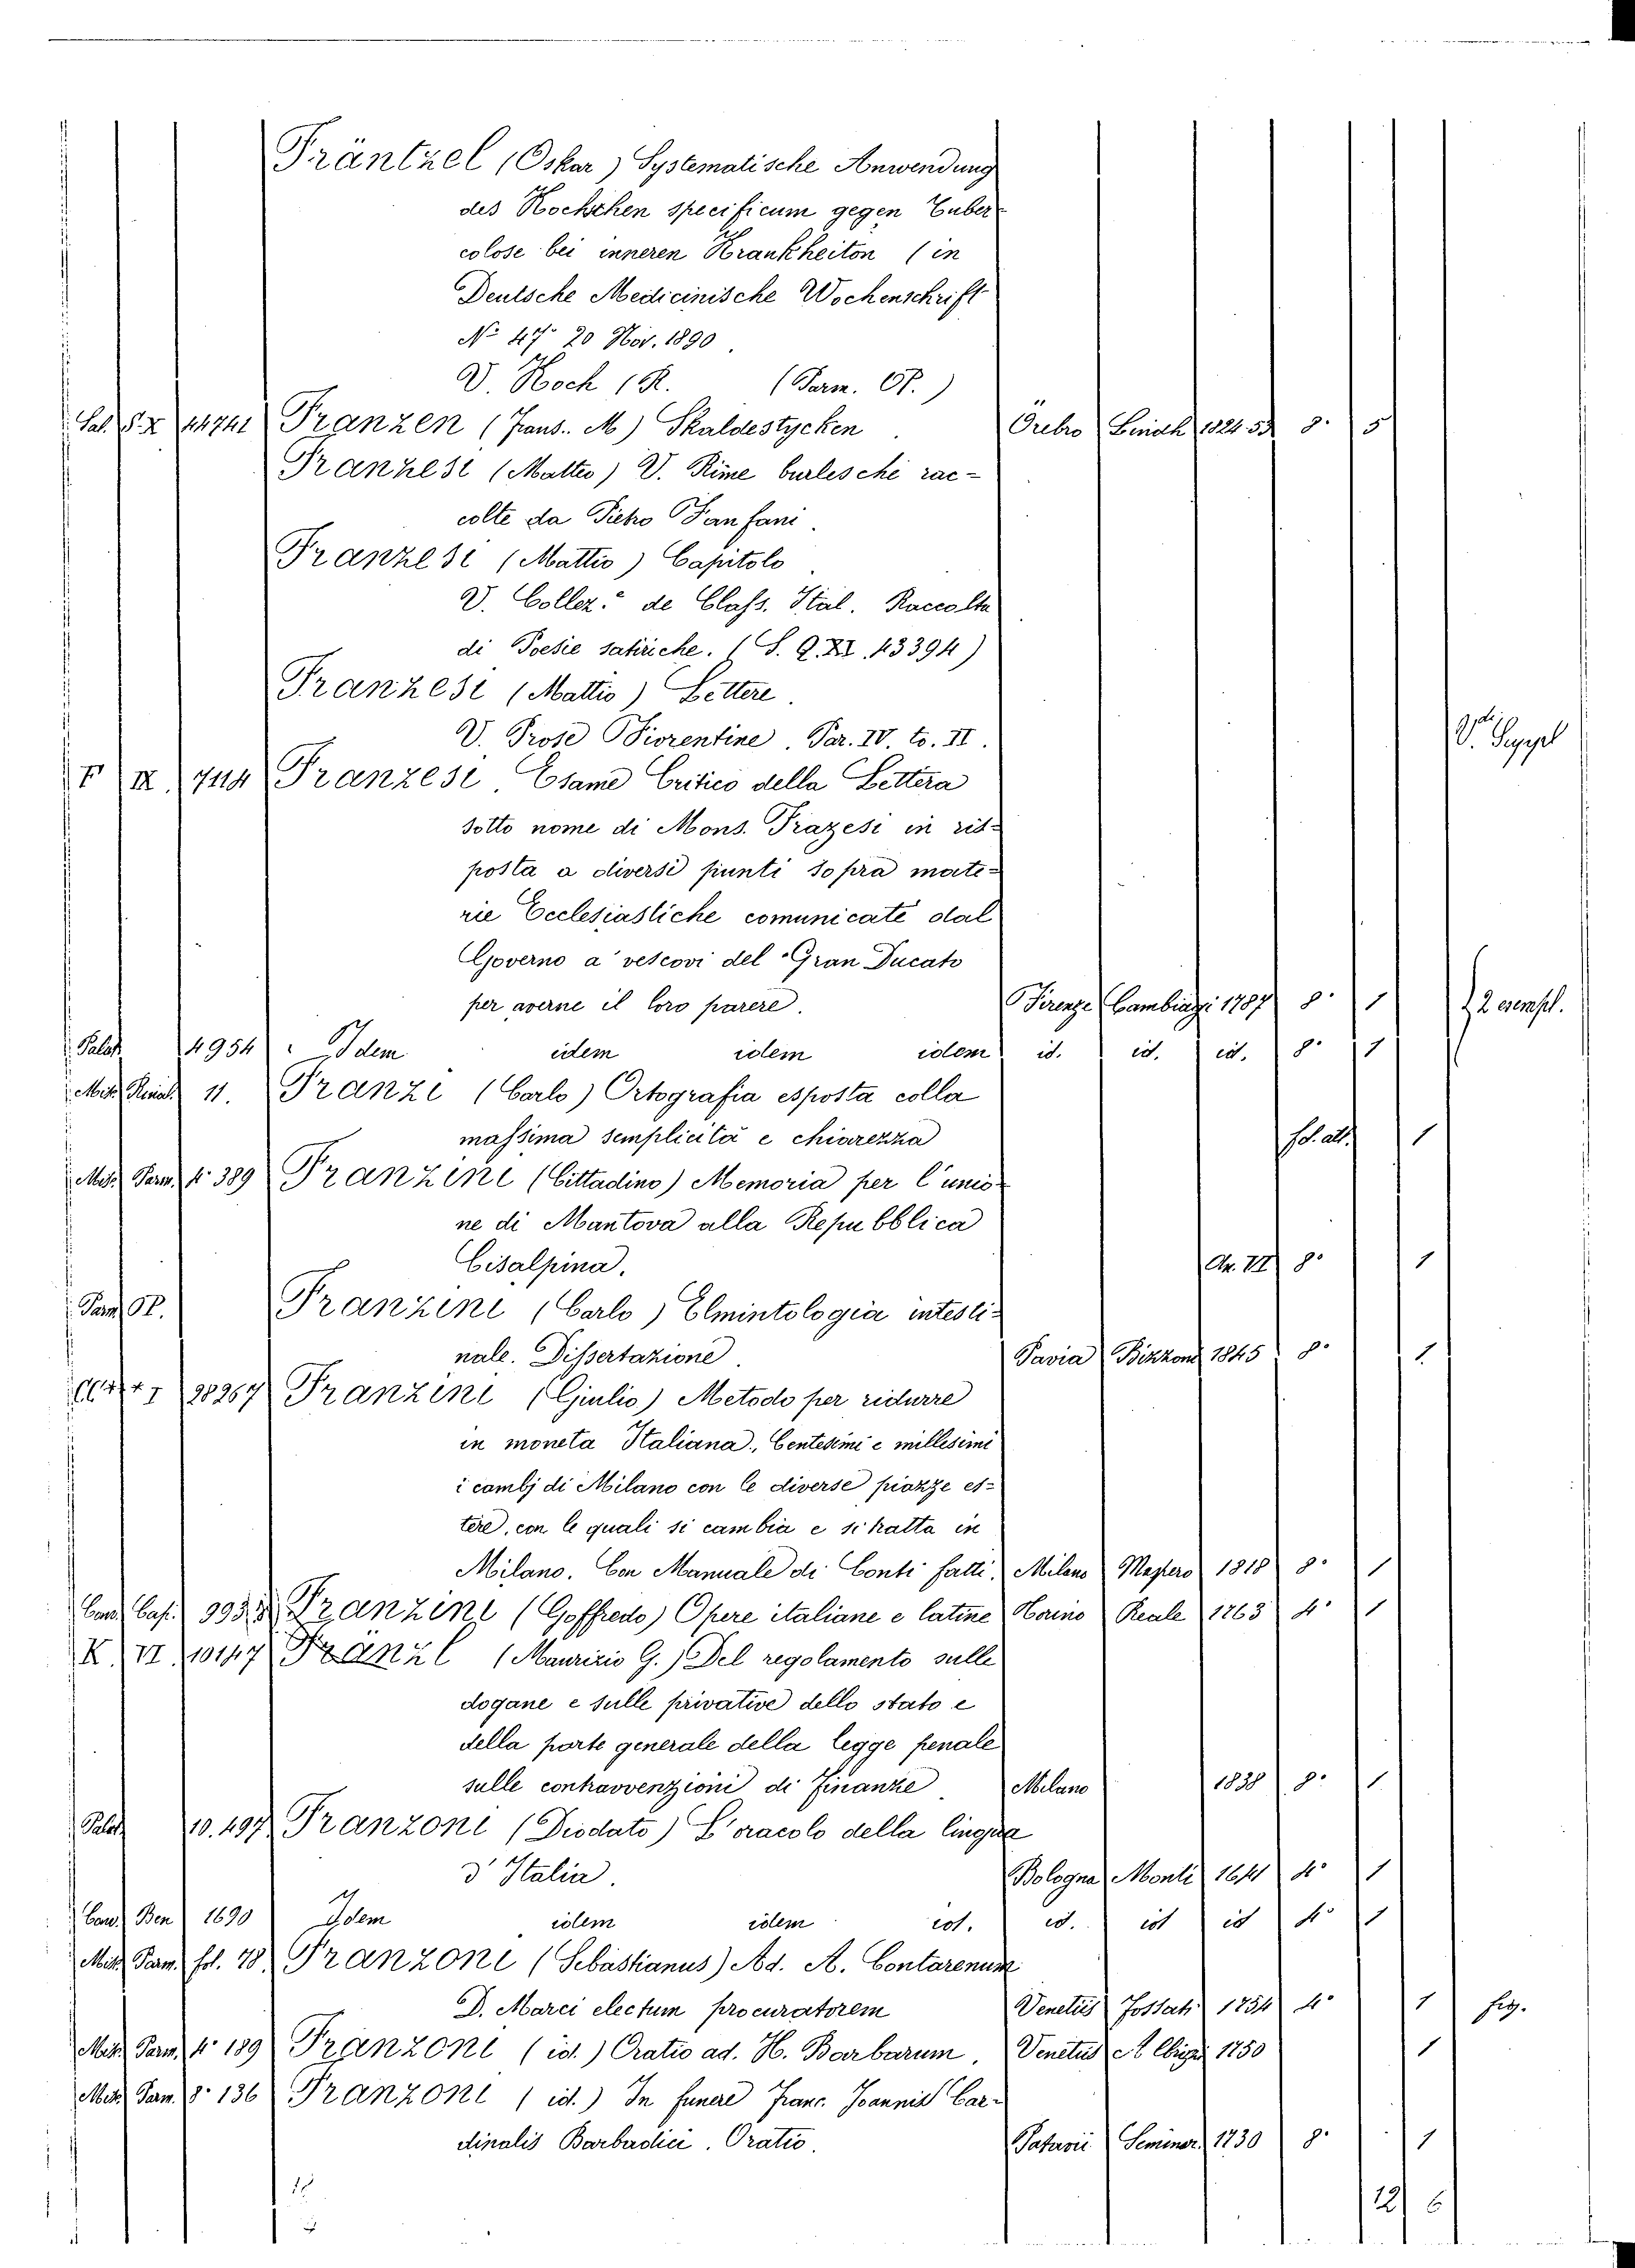 Fräntzel (Oskar) Systematische Anwendung
des Kochschen specificum gegen Tuber-
colose bei inneren Krankheiton (in
Deutsche Medicinische Wochenschrift
No 47 20 Nov. 1890
V. Koch (R. (Parm. OP.)
Sal. S. X 14741 Franzen (Frans. M) Skaldestycken Örebro 1824-53 8° 5
Franzesi (Matteo) V. Rime burlesche rac-
colte da Pietro Fanfani.
Franzesi (Mattio) Capitolo
V. Collez.e de Class. Ital. Raccolta
di Poesie satiriche. (S. Q. XI. 43394)
Franzesi (Mattio) Lettere.
V. Prose Fiorentine. Par. IV. to. II.
F IX. 744 Franzesi Esame Critico della Lettera
sotto nome di Mons. Frazesi in ris-
posta a diversi punti sopra mate-
rie Ecclesiastiche comunicate dal
Governo a' vescovi del Gran Ducato
per averne il loro parere. Firenze Cambiagi 1787 8° 1 2 esempl.
Palat 4954 Idem idem idem idem id. id. id. 8° 1
Mss. 11. Franzi (Carlo) Ortografia esposta colla
massima semplicità e chiarezza fol. atl. 1
Mss. Parm. 4° 389 Franzini (Cittadino) Memoria per l'unio-
ne di Mantova alla Repubblica
Cisalpina. 8° 1
Parm. OP. Franzini (Carlo) Elmintologia intesti-
nale. Dissertazione. Pavia Bizzoni 1845 8° 1
28267 Franzini (Giulio) Metodo per ridurre
in moneta Italiana, Centesimi e millesimi
i cambj di Milano con le diverse piazze es-
tere, con le quali si cambia e si tratta in
Milano. Con Manuale di Conti fatti. Milano Maspero 1818 8° 1
Franzini (Goffredo) Opere italiane e latine Torino Reale 1763 4° 1
K. VI. 10147 Fränzl (Maurizio G.) Del regolamento sulle
dogane e sulle privative dello stato e
della parte generale della legge penale
sulle contravvenzioni di Finanze Milano 1838 8° 1
Palat 10.497 Franzoni (Diodato) L'oracolo della lingua
d'Italia. Bologna Monti 1641 4° 1
Ben 1690 Idem idem idem id. id. id id 4° 1
Mss. Parm. fol. 78. Franzoni (Sebastianus) Ad. A. Contarenum
D. Marci electum procuratorem Venetiis 1754 4° 1 fig.
Mss. Parm. 4° 189 Franzoni (id.) Oratio ad. H. Barbarum. Venetiis 1750 1
Mss. Parm. 8° 136 Franzoni (id.) In funere Franc. Joannis Car-
dinalis Barbadici. Oratio. Patavii Seminar. 1730 8° 1
12 6